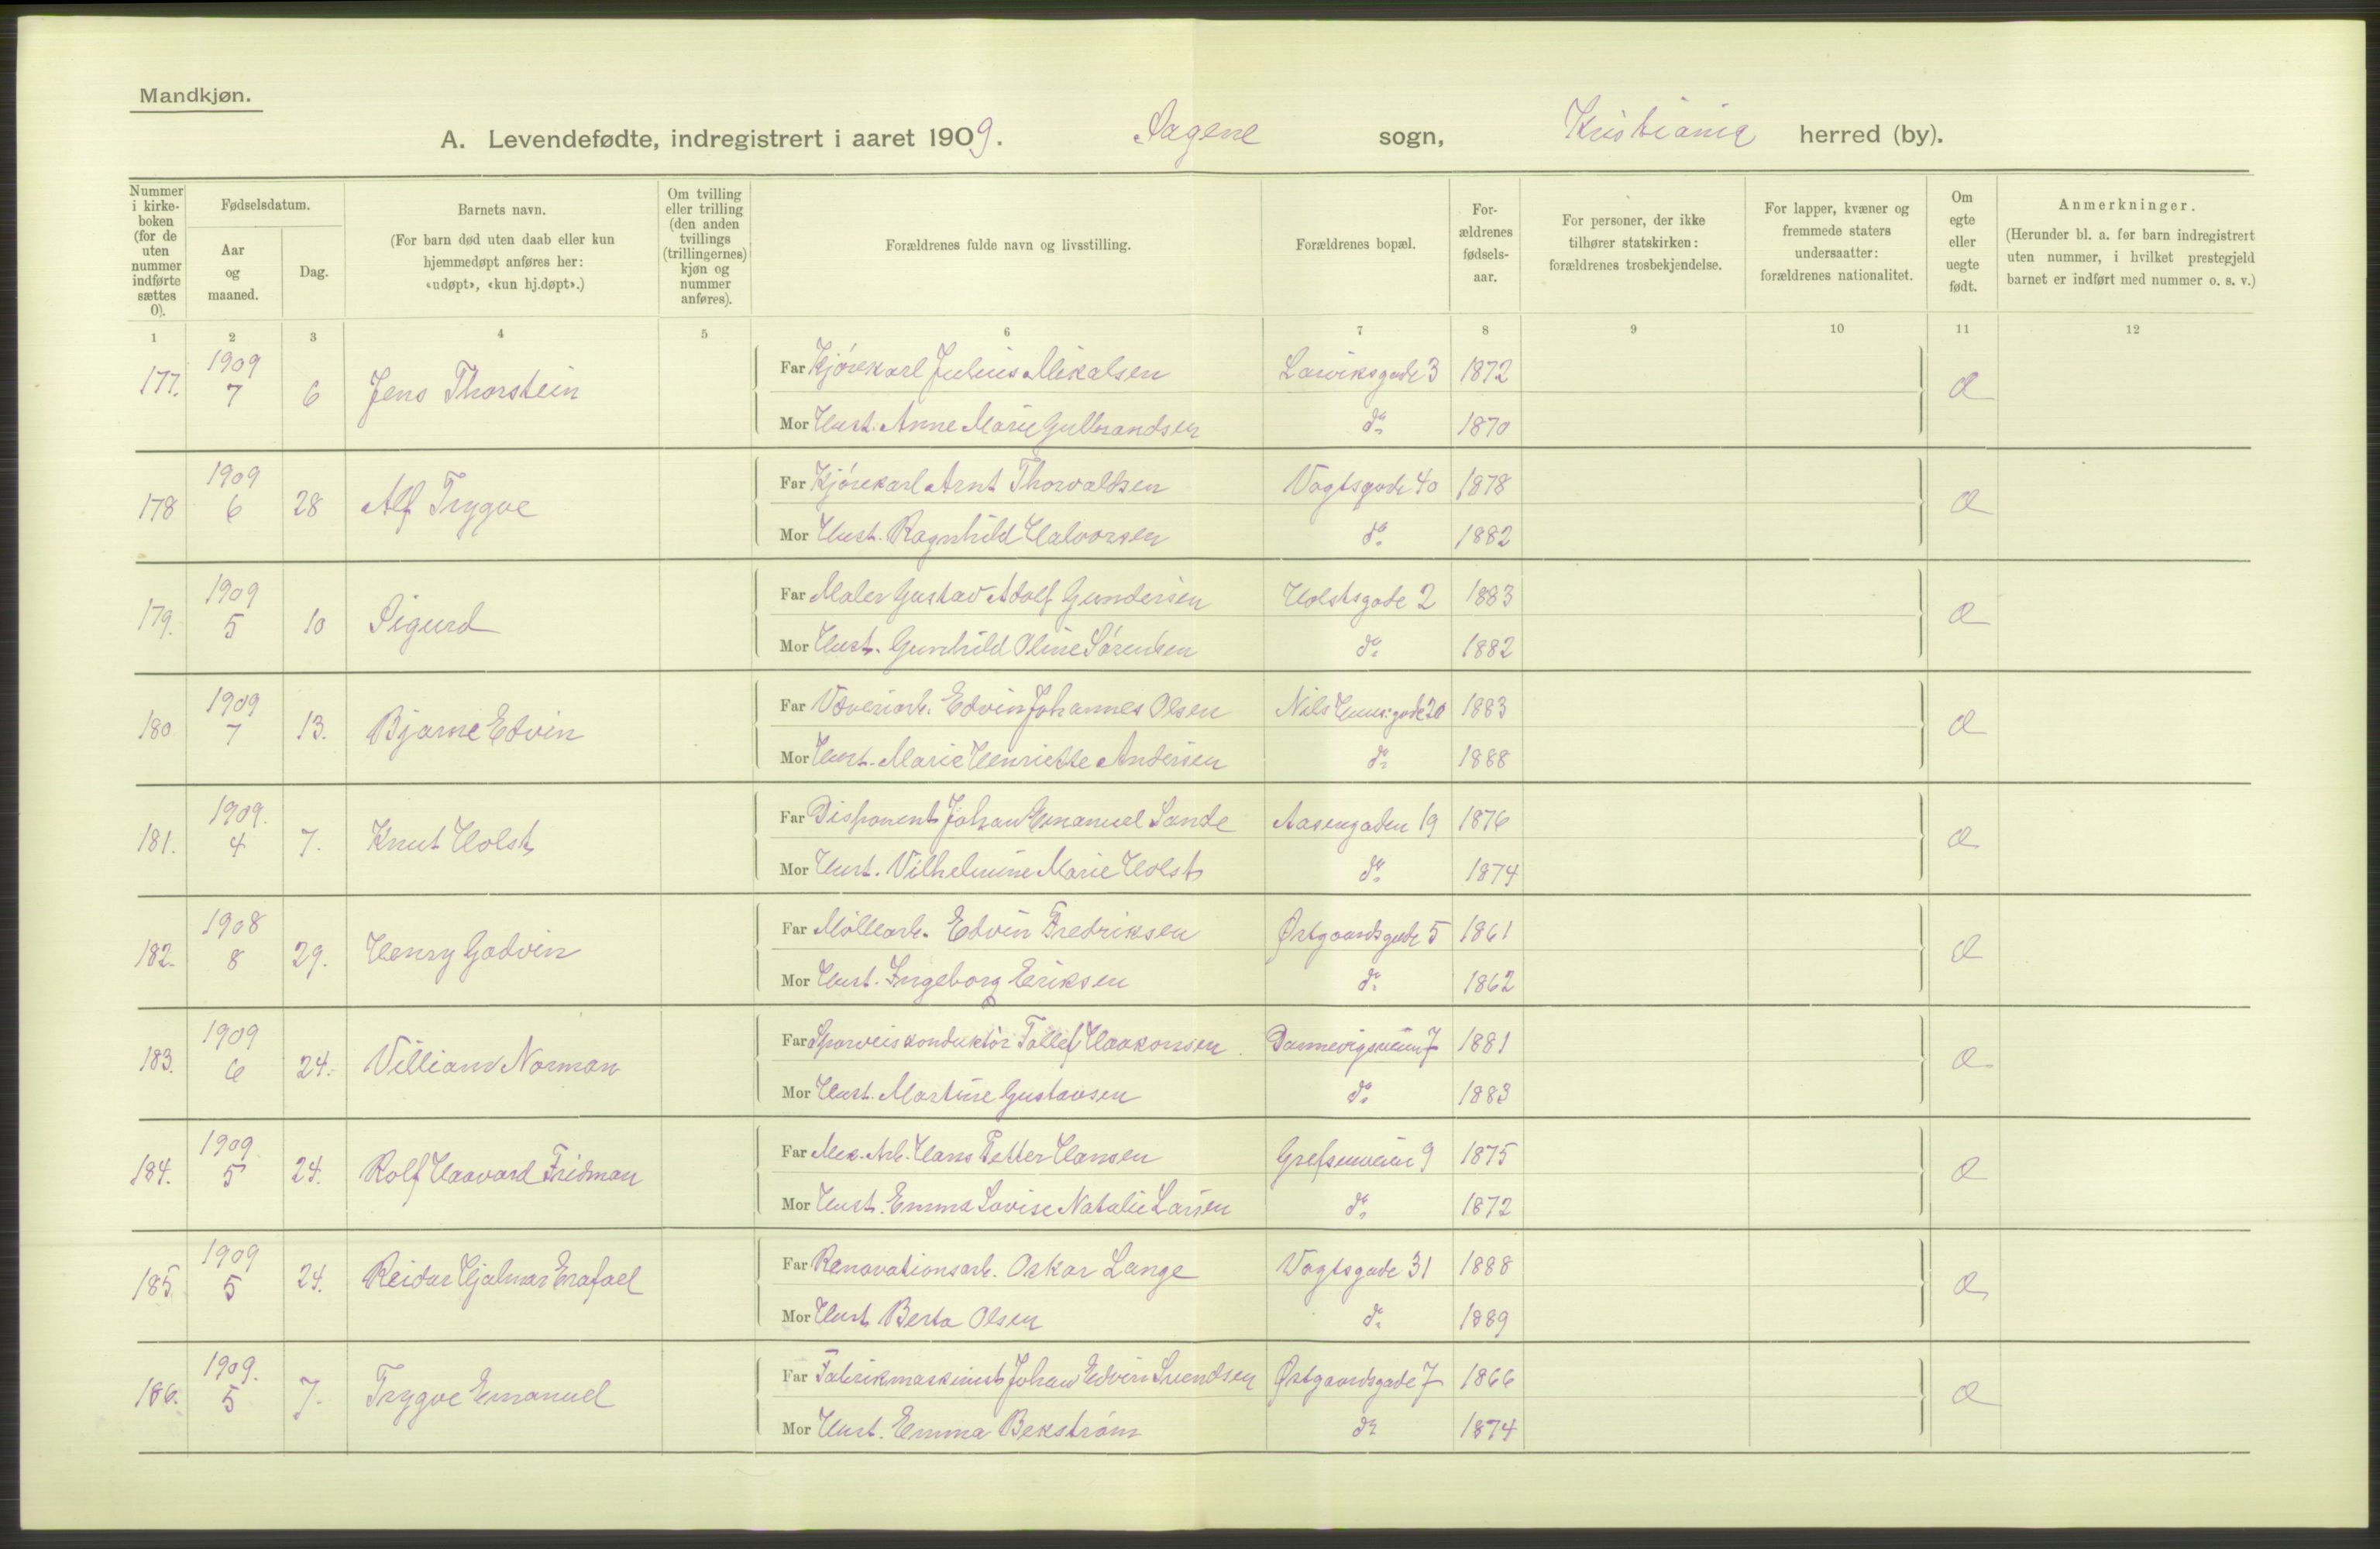 Mandkjøn.
A. Levendefødte, indregistrert i aaret 1909. Sagene sogn, Kristiania herred (by).
Nummer i kirkeboken (for de uten nummer indførte sættes 0).
Fødselsdatum.
Aar og maaned.
Dag.
Barnets navn.
(For barn død uten daab eller kun hjemmedøpt anføres her: «udøpt», «kun hj.døpt».)
Om tvilling eller trilling (den anden tvillings (trillingernes) kjøn og nummer anføres).
Forældrenes fulde navn og livsstilling.
Forældrenes bopæl.
Forældrenes fødselsaar.
For personer, der ikke tilhører statskirken: forældrenes trosbekjendelse.
For lapper, kvæner og fremmede staters undersaatter: forældrenes nationalitet.
Om egte eller uegte født.
Anmerkninger.
(Herunder bl. a. for barn indregistrert uten nummer, i hvilket prestegjeld barnet er indført med nummer o. s. v.)
1 2 3 4 5 6 7 8 9 10 11 12
177. 1909 7 6 Jens Thorstein Far Kjørekarl Julius Mikalsen Larviksgade 3 1872
Mor Hust. Anne Marie Gulbrandsen do 1870
178 1909 6 28 Alf Trygve Far Kjørekarl Arnt Thorvaldsen Vogtsgade 40 1878
Mor Hust. Ragnhild Halvorsen do 1882
179. 1909 5 10 Sigurd Far Maler Gustav Adolf Gundersen Holstsgade 2 1883
Mor Hust. Gunhild Oline Sørensen do 1882
180 1909 7 13. Bjarne Edvin Far Væveriarb. Edvin Johannes Olsen Nils Huus:gade 20 1883
Mor Hust. Marie Henriette Andersen do 1888
181. 1909. 4 7. Knut Holst Far Disponent Johan Emanuel Sande Aasengaden 19 1876
Mor Hust. Vilhelmine Marie Holst do 1874
182. 1908 8 29. Henry Godvin Far Møllearb. Edvin Fredriksen Østgaardsgade 5 1861
Mor Hust. Ingeborg Eriksen do 1862
183. 1909 6 24. Villiam Norman Far Sporveiskonduktør Tollef Haakonsen Dannevigsveien 7 1881
Mor Hust. Martine Gustavsen do 1883
184. 1909 5 24. Rolf Haavard Fridman Far Mek. Arb. Hans Petter Hansen Grefsenveien 9 1875
Mor Hust. Emma Lovise Natalie Larsen do 1872
185 1909 5 24. Reidar Hjalmar Erafael Far Renovationsarb. Oskar Lange Vogtsgade 31 1888
Mor Hust Berta Olsen do 1889
186. 1909. 5 7. Trygve Emanuel Far Fabrikmaskinist Johan Edvin Svendsen Østgaardsgade 7 1866
Mor Hust. Emma Bekstrøm do 1874